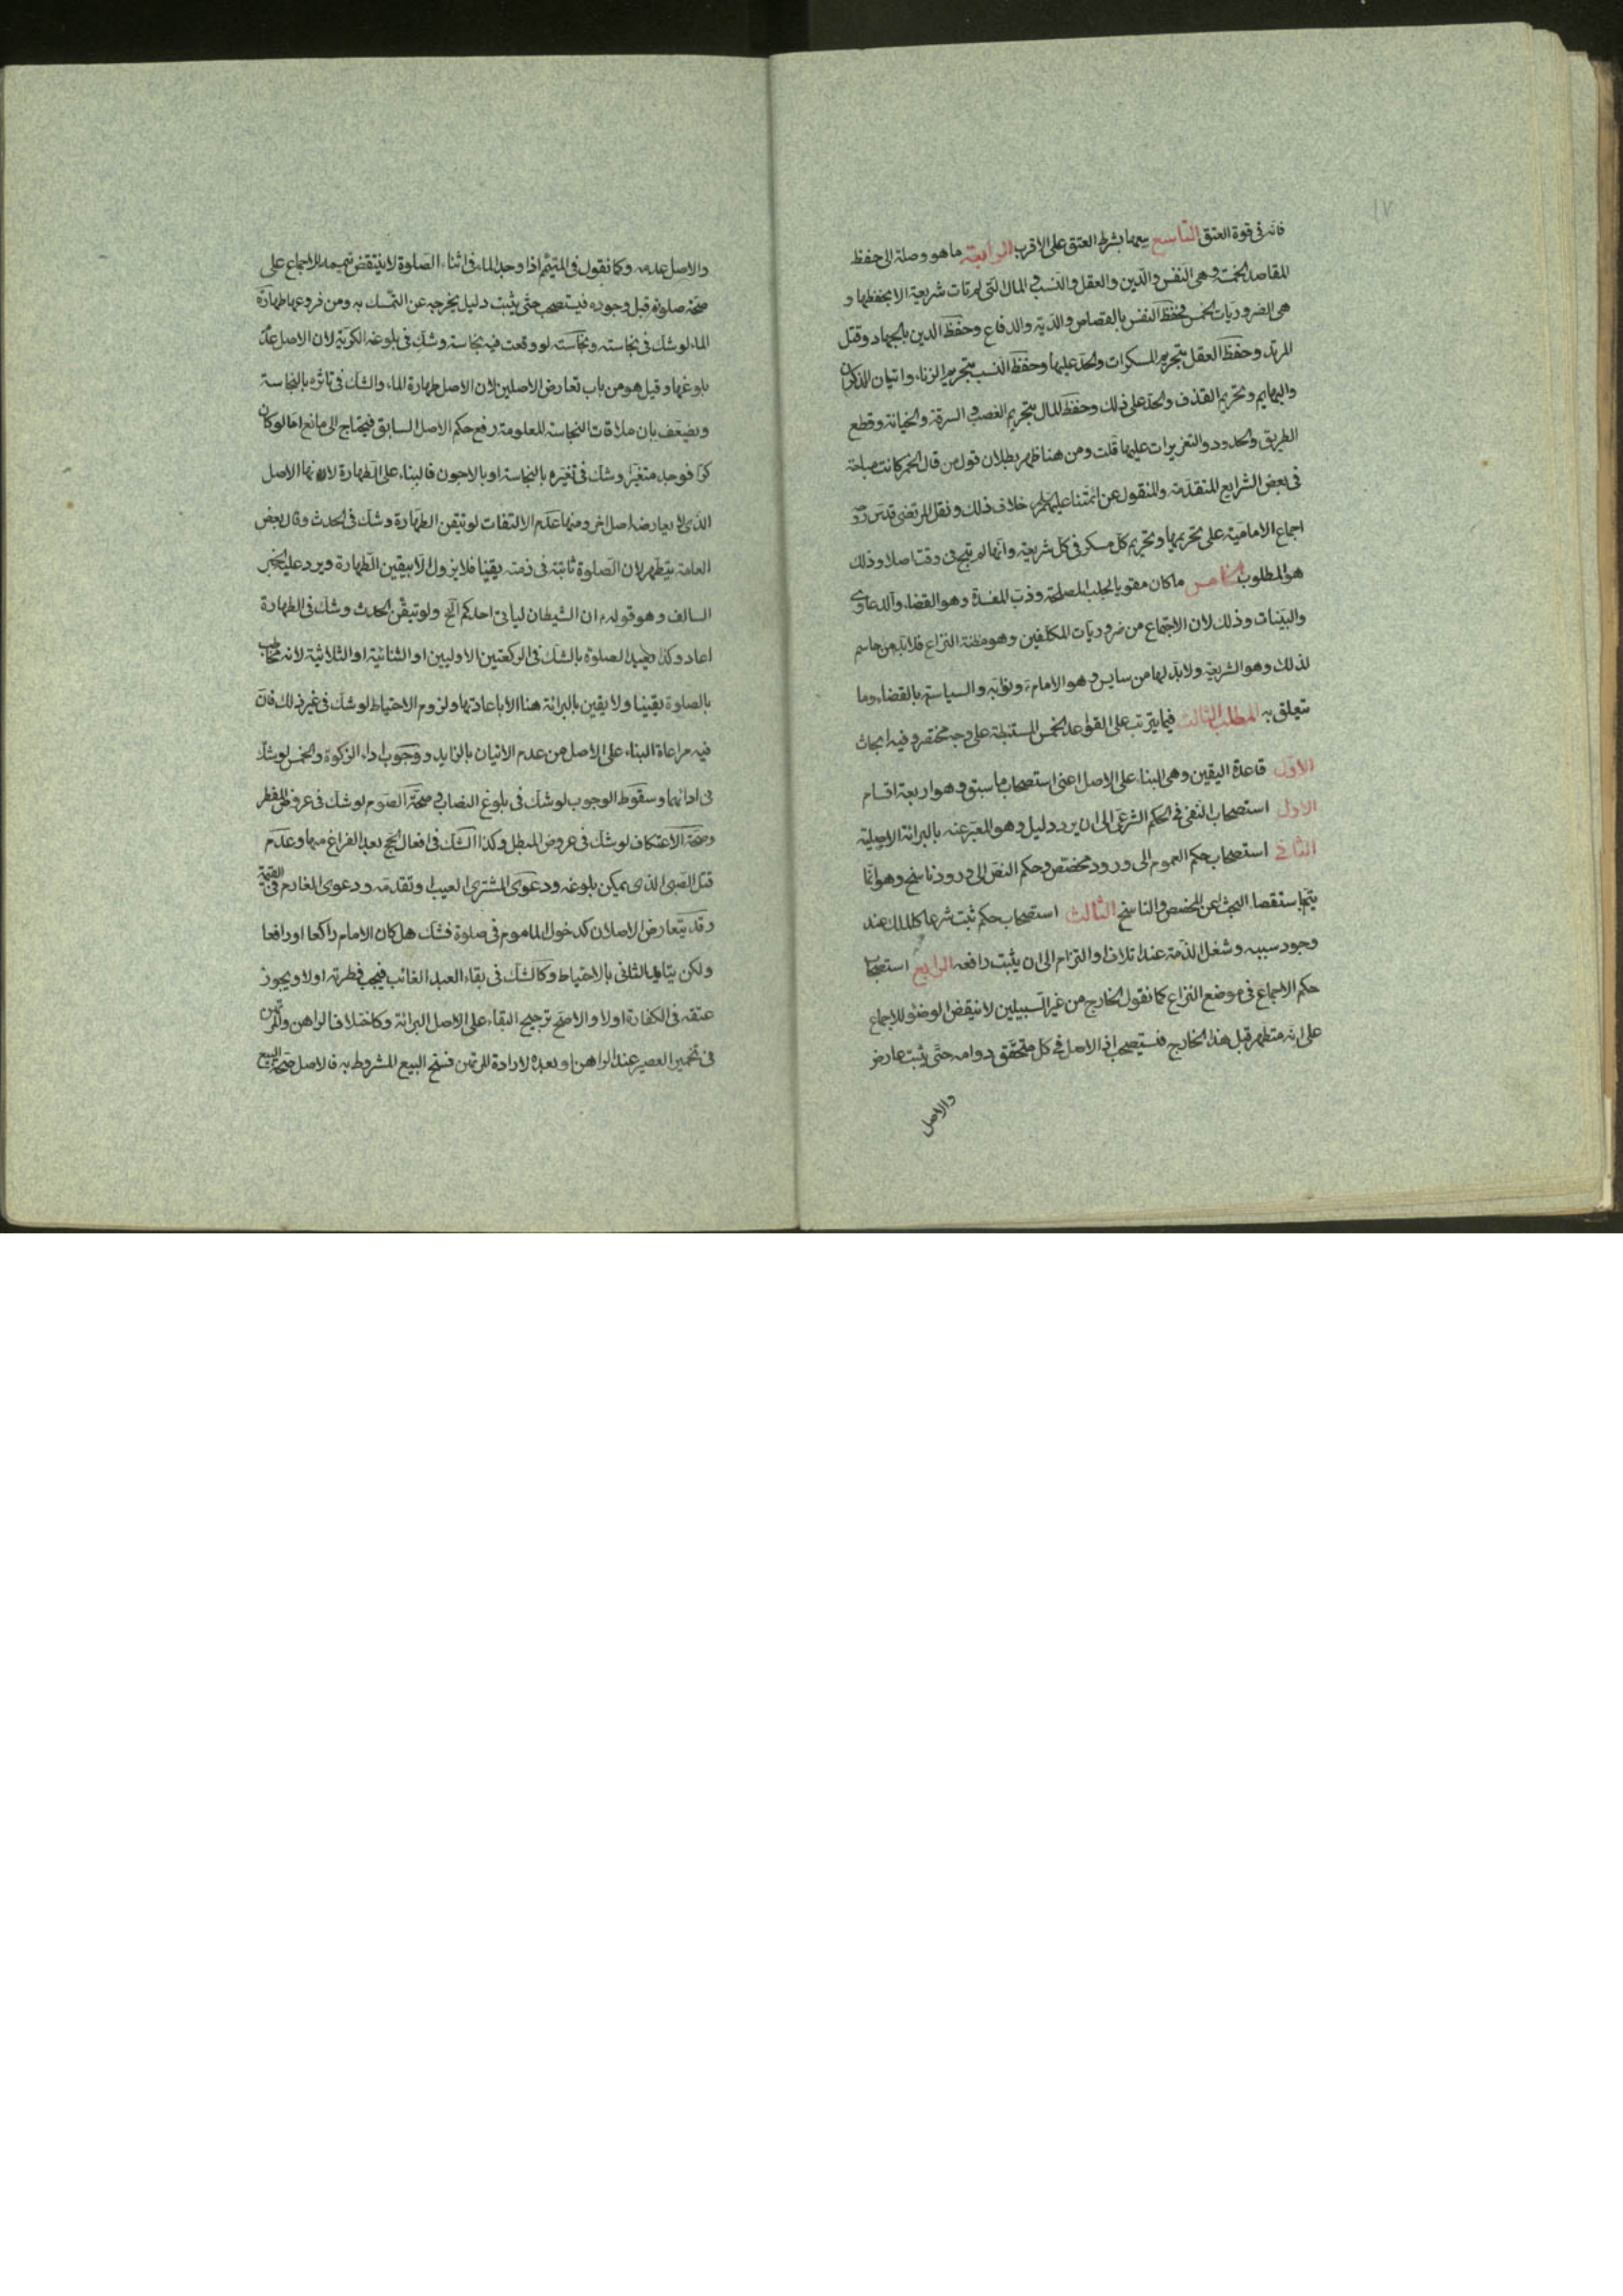 ١٧
فانه فى قوة العتق التاسع بيعها بشرط العتق على الاقرب الرابعة ما هو وصلة الى حفظ
المقاصد الخمسة وهى النفس والدين والعقل والنسب والمال التى لم تات شريعة الا بحفظها و
هى الضروريات الخمس فحفظ النفس بالقصاص والدية والدفاع وحفظ الدين بالجهاد وقتل
المرتد وحفظ العقل بتحريم المسكرات والحد عليها وحفظ النسب بتحريم الزناء واتيان الذكران
والبهايم وتحريم القذف والحد على ذلك وحفظ المال بتحريم الغصب والسرقة والخيانة وقطع
الطريق والحدود والتعزيرات عليها قلت ومن هنا ظهر بطلان قول من قال الخمر كانت مباحة
فى بعض الشرايع المتقدمة والمنقول عن ائمتنا عليهم خلاف ذلك ونقل المرتضى قدس
اجماع الامامية على تحريمها وتحريم كل مسكر فى كل شريعة وانها لم تبح فى وقت اصلا وذلك
هو المطلوب الخامس ما كان مقويا لجلب المصلحة وذب المفسدة وهو القضاء والدعاوى
والبينات وذلك لان الاجتماع من ضروريات المكلفين وهو مظنة النزاع فلا بد من حاسم
لذلك وهو الشريعة ولا بد لها من سايس وهو الامام ونوابه والسياسة بالقضاء وما
يتعلق به المطلب الثالث فيما يترتب على القواعد الخمس المستنبطة على وجه مختصر وفيه ابحاث
الاول قاعدة اليقين وهى البناء على الاصل اعنى استصحاب ما سبق وهو اربعة اقسام
الاول استصحاب النفى فى الحكم الشرعى الى ان يرد دليل وهو المعبر عنه بالبرائة الاصلية
الثانى استصحاب حكم العموم الى ورود مخصص وحكم النص الى ورود ناسخ وهو انما
يتم باستقصاء البحث عن المخصص والناسخ الثالث استصحاب حكم ثبت شرعا كالملك عند
وجود سببه وشغل الذمة عند اتلاف او التزام الى ان يثبت رافعه الرابع استصحاب
حكم الاجماع فى موضع النزاع كما نقول الخارج من غير السبيلين لا ينقض الوضوء للاجماع
على انه متطهر قبل هذا الخارج فيستصحب اذ الاصل فى كل متحقق دوامه حتى يثبت معارض
والاصل
والاصل عدمه وكما نقول فى المتيمم اذا وجد الماء فى اثناء الصلوة لا ينتقض تيممه للاجماع على
صحة صلوته قبل وجوده فيستصحب حتى يثبت دليل يخرجه عن التمسك به ومن فروعها طهارة
الماء لو شك فى نجاسته ونجاسته لو وقعت فيه نجاسة وشك فى بلوغه الكرية لان الاصل عدم
بلوغها وقيل هو من باب تعارض الاصلين لان الاصل طهارة الماء والشك فى تاثره بالنجاسة
ويضعف بان ملاقات النجاسة المعلومة رفع حكم الاصل السابق فيحتاج الى مانع اما لو كان
كرا فوجد متغيرا وشك فى تغيره بالنجاسة او بالاجون فالبناء على الطهارة لانها الاصل
الذى لا يعارضه اصل اخر ومنها عدم الالتفات لو تيقن الطهارة وشك فى الحدث وقال بعض
العامة يتطهر لان الصلوة ثابتة فى ذمته يقينا فلا يزول الا بيقين الطهارة ويرد عليه الخبر
السالف وهو قوله ان الشيطان لياتى احدكم الخ ولو تيقن الحدث وشك فى الطهارة
اعاد وكذا يعيد الصلوة بالشك فى الركعتين الاوليين او الثنائية او الثلاثية لانه مخاطب
بالصلوة يقينا ولا يقين بالبرائة هنا الا باعادتها ولزوم الاحتياط لو شك فى غير ذلك فان
فيه مراعاة البناء على الاصل من عدم الاتيان بالزايد ووجوب اداء الزكوة والخمس لو شك
فى ادائهما وسقوط الوجوب لو شك فى بلوغ النصاب وصحة الصوم لو شك فى عروض المفطر
وصحة الاعتكاف لو شك فى عروض المبطل وكذا الشك فى افعال الحج بعد الفراغ منها وعدم
قتل الصبى الذى يمكن بلوغه ودعوى المشترى العيب او تقدمه ودعوى الغارم فى القيمة
وقد يتعارض الاصلان كدخول الماموم فى صلوة فشك هل كان الامام راكعا او رافعا
ولكن يتايد الثانى بالاحتياط وكالشك فى بقاء العبد الغائب فيجب فطرته او لا ويجوز
عتقه فى الكفارة او لا والاصح ترجيح البقاء على الاصل البرائة وكاختلاف الراهن والمرتهن
فى تخمير العصير عند الراهن او بعده لارادة المرتهن فسخ البيع المشروط به فالاصل صحة البيع